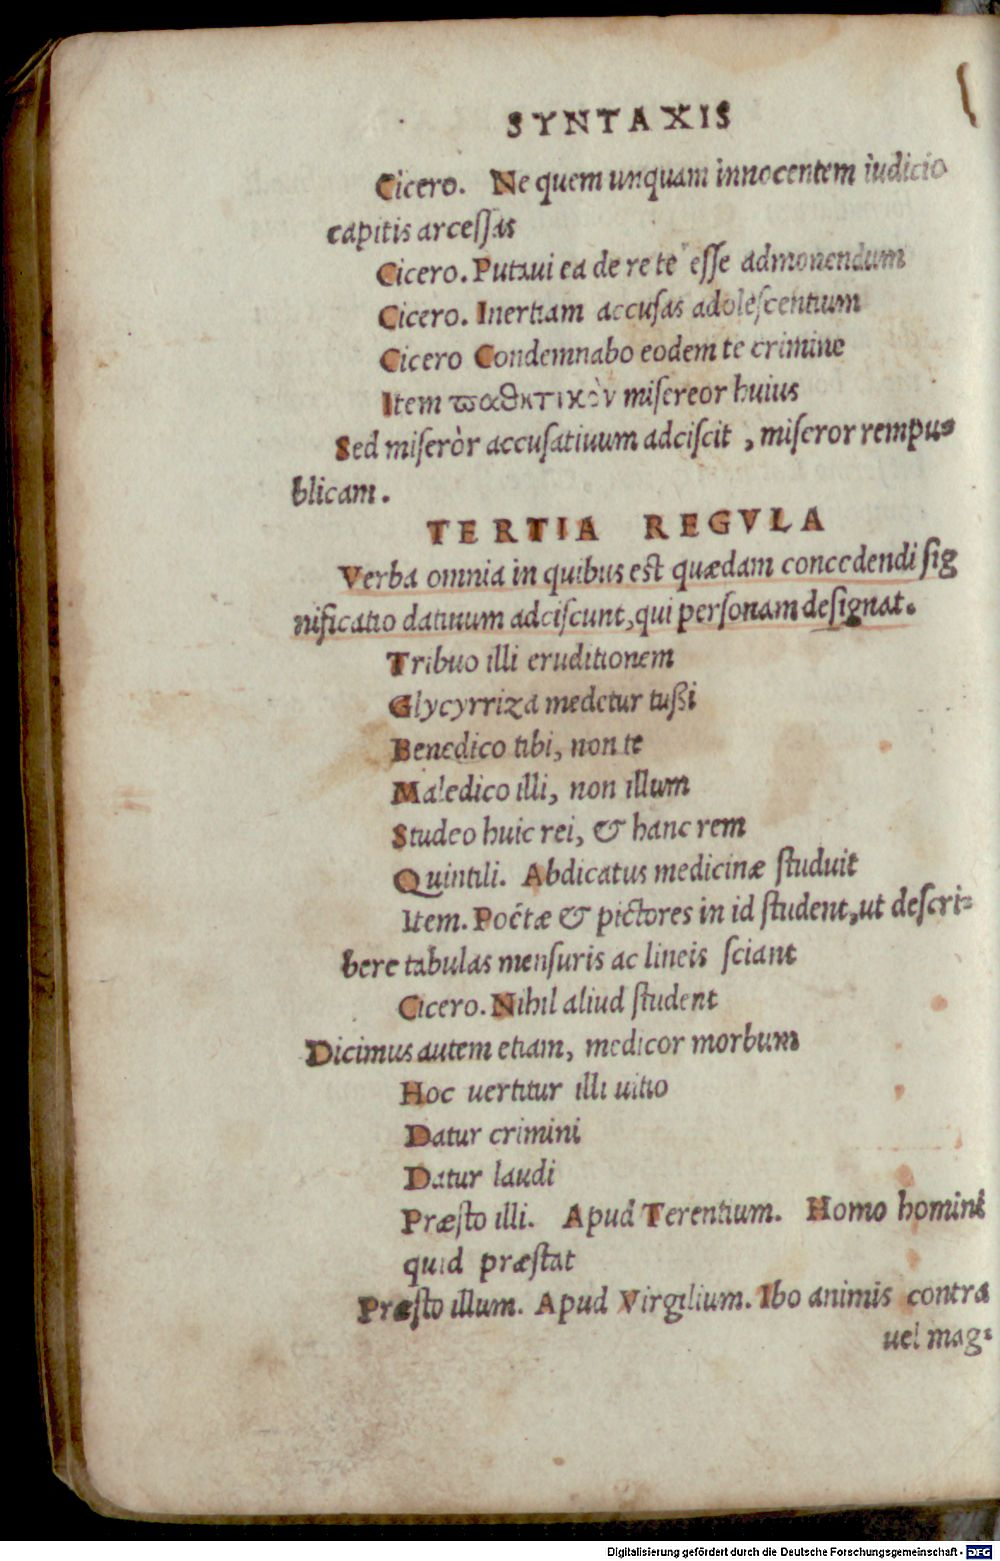 SYNTAXIS
Cicero. Ne quem unquam innocentem iudicio
capitis arceſſas
Cicero. Putaui ea de re te eſſe admonendum
Cicero. Inertiam accuſas adoleſcentium
Cicero Condemnabo eodem te crimine
Item ϖαθητικὸν miſereor huius
Sed miſeròr accuſatiuum adciſcit , miſeror rempu⸗
blicam.
TERTIA REGVLA
Verba omnia in quibus est quædam concedendi ſig
nificatio datiuum adciſcunt, qui perſonam deſignat.
Tribuo illi eruditionem
Glycyrriza medetur tußi
Benedico tibi, non te
Maledico illi, non illum
Studeo huic rei, & hanc rem
Quintili. Abdicatus medicinæ ſtuduit
Item. Poëtæ & pictores in id ſtudent, ut deſcri⸗
bere tabulas menſuris ac lineis ſciant
Cicero. Nihil aliud ſtudent
Dicimus autem etiam, medicor morbum
Hoc uertitur illi uitio
Datur crimini
Datur laudi
Præſto illi. Apud Terentium. Homo homini
quid præſtat
Præſto illum. Apud Virgilium. Ibo animis contra
uel mag⸗
Digitalisierung gefördert durch die Deutsche Forschungsgemeinschaft - DFG